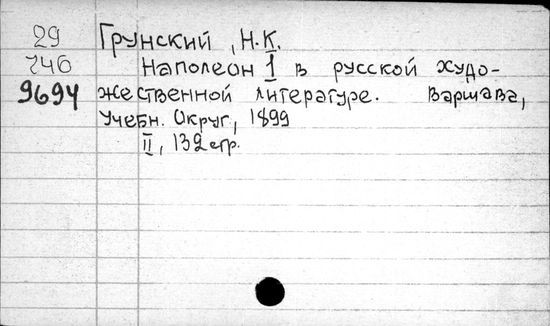 29 Грунский, Н.К.
746 Наполеон I в русской худо-
9694 жественной литературе. Варшава,
Учебн. Округ, 1899
II, 132 стр.